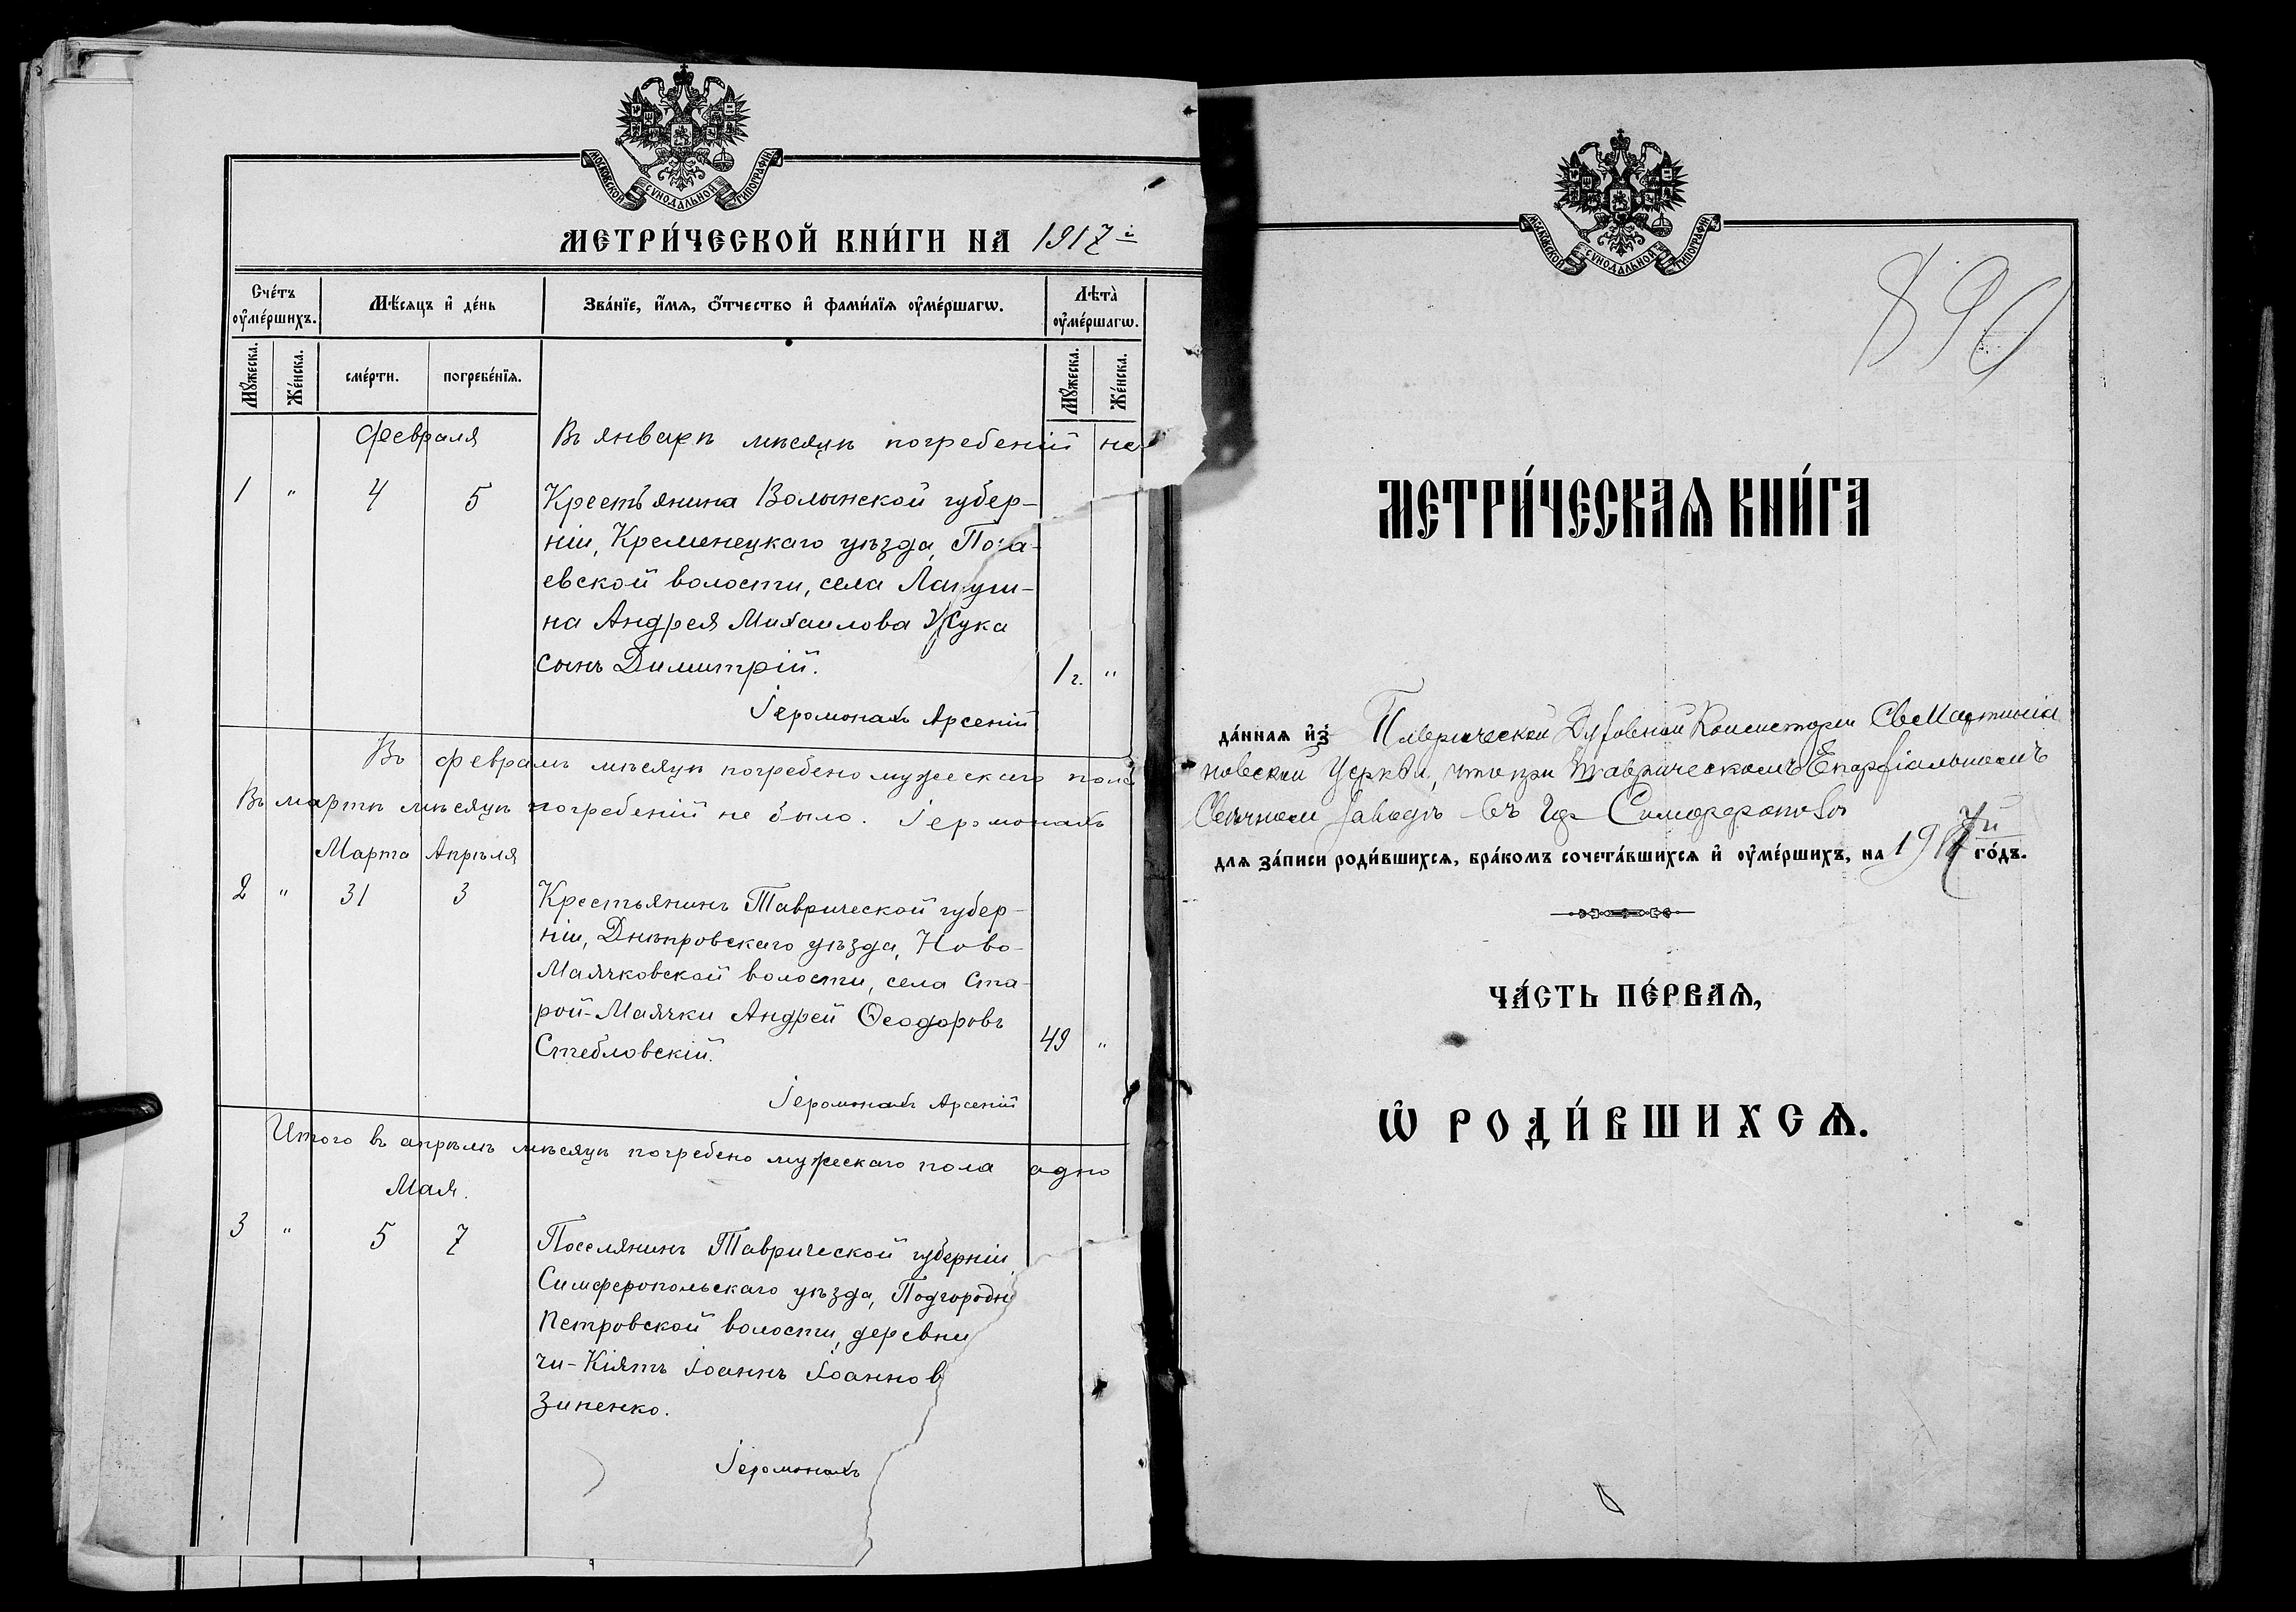 МОСКОВСКОЙ СѴНОДАЛЬНОЙ ТИПОГРАФІИ
МЕТРИ́ЧЕСКОЙ КНИ́ГИ НА 1917 г
Сче́тъ оу҆ме́ршихъ.
Мѣ́сяцъ и҆ де́нь
Зва́нїе, и҆́мѧ, ѻ҆́тчество и҆ фами́лїѧ оу҆ме́ршагѡ.
Лѣта̀ оу҆ме́ршагѡ.
Мꙋ́жеска.
Же́нска.
сме́рти.
погребе́нїѧ.
Мꙋ́жеска.
Же́нска.
Февраля
Въ январѣ мѣсяцѣ погребеній не
1 " 4 5 Крестьянина Волынской губер-
ніи, Кременецкаго уѣзда, Поча-
евской волости, села
на Андрея Михаилова Жука
сынъ Димитрій. 1 г. "
Іеромонахъ Арсеній
Въ февралѣ мѣсяцѣ погребено мужескаго пола
Въ мартѣ мѣсяцѣ погребеній не было. Іеромонахъ
Марта Апрѣля
2 " 31 3 Крестьянинъ Таврической губер-
ніи, Днѣпровскаго уѣзда, Ново-
Маячковской волости, села Ста-
рой-Маячки Андрей Ѳеодоровъ
Стебловскій. 49 "
Іеромонахъ Арсеній
Итого въ апрѣлѣ мѣсяцѣ погребено мужескаго пола одно
Мая.
3 " 5 7 Поселянинъ Таврической губерніи
Симферопольскаго уѣзда, Подгородн
Петровской волости, деревни
чи-Кіятъ Іоаннъ Іоаннов
Зиненко.
Іеромонахъ
МОСКОВСКОЙ СѴНОДАЛЬНОЙ ТИПОГРАФІИ
МЕТРИ́ЧЕСКАѦ КНИ́ГА
да́ннаѧ и҆з̾ Таврической Духовной Консисторіи
новской Церкви, что при Таврическомъ Епархіальномъ
Свѣчномъ Заводѣ въ гор Симферополѣ
для за́писи роди́вшихсѧ, бра́комъ сочета́вшихсѧ и҆ оу҆ме́ршихъ, на 1917й го́дъ.
ЧА́СТЬ ПЕ́РВАѦ,
Ѡ҆ РОДИ́ВШИХСѦ.